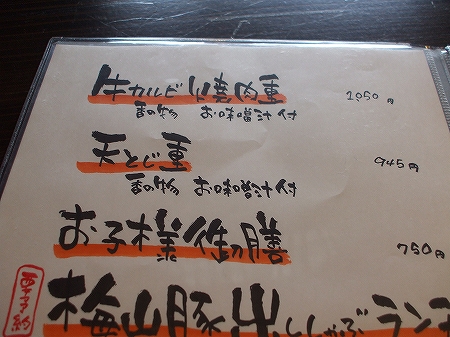 牛カルビ焼肉重 1050円
香の物 お味噌汁付
天とじ重 945円
香の物 お味噌汁付
お子様御膳 750円
要予約
梅山豚出としゃぶランチ